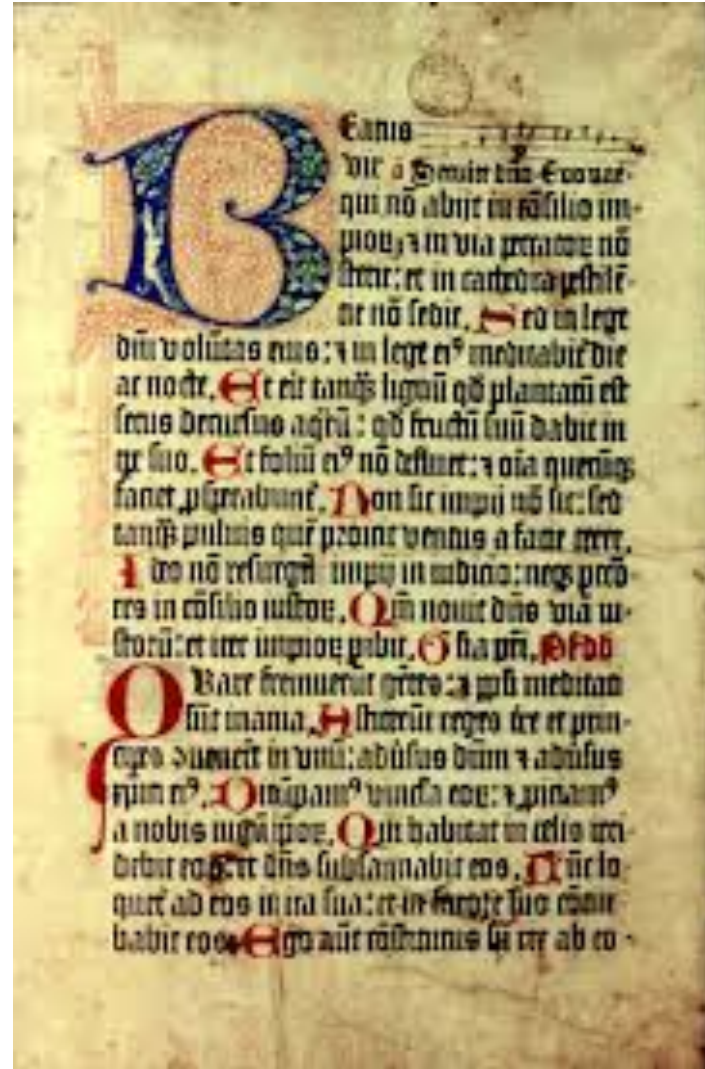 Beatus
vir Servite dno Euouae
qui nō abijt in cōsilio im-
pioꝝ ⁊ in via peccatoꝝ nō
stetit: et in cathedra pestilē-
tie nō sedit. Sed in lege
dn̄i volūtas eius: ⁊ in lege eiꝰ meditabit᷑ die
ac nocte. Et erit tanqꝫ lignū qd̄ plantatū est
secus decursus aqꝝū: qd̄ fructū suū dabit in
tꝑe suo. Et foliū eiꝰ nō defluet: ⁊ oīa quecūqꝫ
faciet ꝓsꝑabunt᷑. Non sic impij nō sic: sed
tanqꝫ puluis quē proicit ventus a facie terre.
Ideo nō resurgūt impij in iudicio: neqꝫ pctō-
res in cōsilio iustoꝝ. Qm̄ nouit dn̄s viā iu-
storū: et iter impioꝝ ꝑibit. Gl̄ia pr̄i.
Quare fremuerūt gētes: ⁊ ppl̄i meditati
sūt inania. Astiterūt reges tre et prin-
cipes ꝯuenerūt in vnū: aduersus dn̄m ⁊ aduersus
xp̄m eiꝰ. Dirūpamꝰ vincla eoꝝ: ⁊ ꝓiciamꝰ
a nobis iugū ip̄oꝝ. Qui habitat in celis irri-
debit eos: et dn̄s subsannabit eos. Tūc lo-
quet᷑ ad eos in ira sua: et in furore suo cōtur-
babit eos. Ego aūt cōstitutus sū rex ab eo